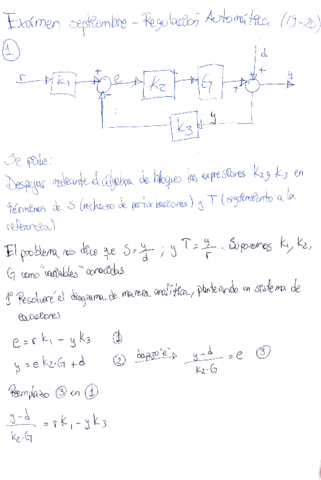 Exámen septiembre - Regulación Automática (19-20)
①
d
r k₁ e k₂ G y
k₃ y
Se pide:
Despejar mediante el álgebra de bloques las expresiones k₂ y k₃ en
términos de S (rechazo de perturbaciones) y T (seguimiento a la
referencia)
El problema nos dice que S = y/d ; y T = y/r . Suponemos k₁, k₂,
G como "variables" conocidas
1º Resolveré el diagrama de manera analítica, planteando un sistema de
ecuaciones
e = r k₁ - y k₃ ①
y = e k₂·G + d ② despejo "e" → (y-d)/(k₂·G) = e ③
Reemplazo ③ en ①
(y-d)/(k₂·G) = r k₁ - y k₃